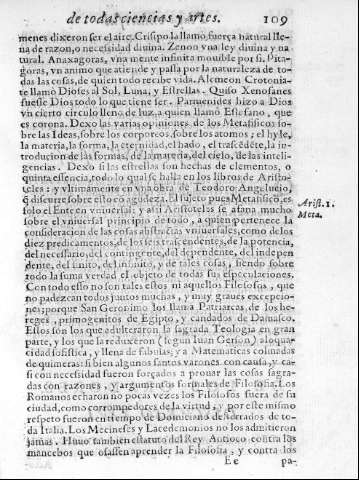 de todas ciencias y artes. 109
menes dixeron ser el aire. Crisipo la llamò fuerça natural lle-
na de razon, o necesidad diuina. Zenon vna ley diuina y na-
tural. Anaxagoras, vna mente infinita mouible por si. Pita-
goras, vn animo que atiende y passa por la naturaleza de to-
das las cosas, de quien todo recibe vida. Alcmeon Crotonia-
te llamò Dioses al Sol, Luna, y Estrellas. Quiso Xenofanes
fuesse Dios todo lo que tiene ser. Parmenides hizo a Dios
vn cierto circulo lleno de luz, a quien llamò Estefano, que
es corona. Dexo las varias opiniones de los Metafisicos so-
bre las Ideas, sobre los corporeos, sobre los atomos; el hyle,
la materia, la forma, la eternidad, el hado, el trascēdēte, la in-
troducion de las formas, de la materia, del cielo, de las inteli-
gencias. Dexo si las estrellas son hechas de elementos, o
quinta essencia, todo lo qual se halla en los libros de Aristo-
teles: y vltimamente en vna obra de Teodoro Angelucio, q̃
discurre sobre esto cō agudeza. El sujeto pues Metafisico, es
solo el Ente en vniuersal; y assi Aristoteles se afana mucho
Arist. 1.
Meta.
sobre el vniuersal principio de todo, a quien pertenece la
consideracion de las cosas abstractas vniuersales, como de los
diez predicamentos, de los seis trascendentes, de la potencia,
del necessario, del contingente, del dependente, del indepen
dente, del finito, del infinito, y de tales cosas, siendo sobre
todo la suma verdad el objeto de todas sus especulaciones.
Con todo esso no son tales estos ni aquellos Filosofos, que
no padezcan todos juntos muchas, y muy graues excepcio-
nes; porque San Geronimo los llama Patriarcas de los he-
reges, primogenitos de Egipto, y candados de Damasco.
Estos son los que adulteraron la sagrada Teologia en gran
parte, y los que la reduxeron (segun Iuan Gerson) a loqua-
cidad sofistica, y llena de fabulas; y a Matematicas colmadas
de quimeras: si bien algunos santos varones con causa, y ca-
si con necessidad fueron forçados a prouar las cosas sagra-
das con razones, y argumentos formales de Filosofia. Los
Romanos echaron no pocas vezes los Filosofos fuera de su
ciudad, como corrompedores de la virtud, y por este mismo
respeto fueron en tiempo de Domiciano desterrados de to-
da Italia. Los Mecineses y Lacedemonios no los admitieron
jamas. Huuo tambien estatuto del Rey Antioco contra los
mancebos que osassen aprender la Filosofia, y contra los
Ee pa-